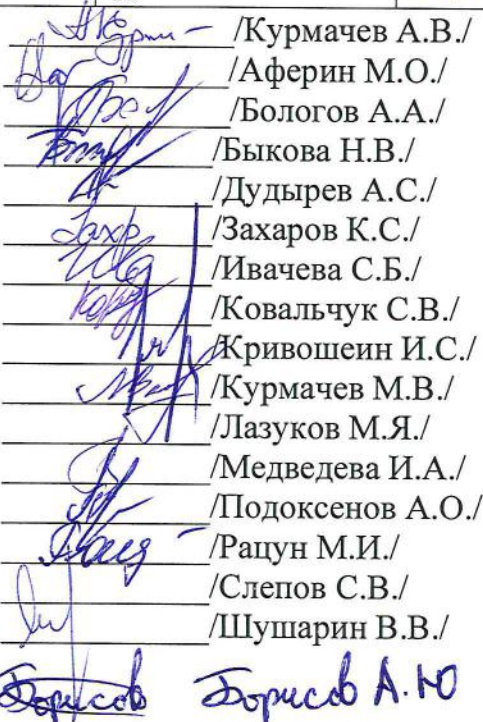 /Курмачев А.В./
/Аферин М.О./
/Бологов А.А./
/Быкова Н.В./
/Дудырев А.С./
Захр /Захаров К.С./
/Ивачева С.Б./
/Ковальчук С.В./
/Кривошеин И.С./
/Курмачев М.В./
/Лазуков М.Я./
/Медведева И.А./
/Подоксенов А.О./
/Рацун М.И./
/Слепов С.В./
/Шушарин В.В./
Борисов Борисов А.Ю